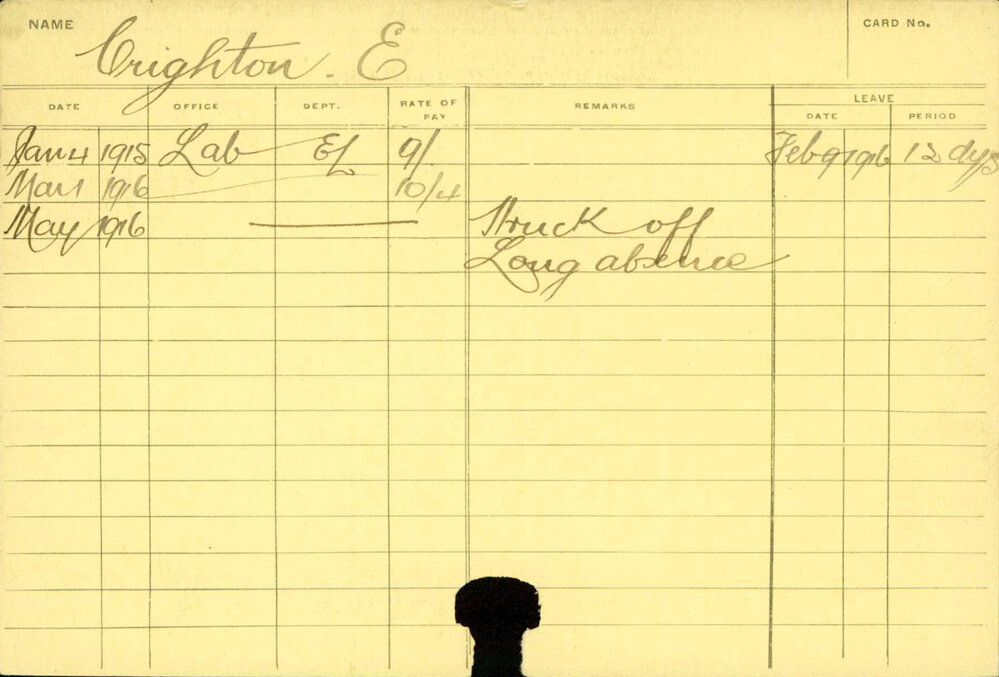 NAME Crighton. E CARD No.
DATE OFFICE DEPT. RATE OF PAY REMARKS LEAVE
DATE PERIOD
Jan 4 1915 Lab EL 9/ Feb 9 1916 12 dys
Mar 1 1916 10/4
May 1916 Struck off
Long absence